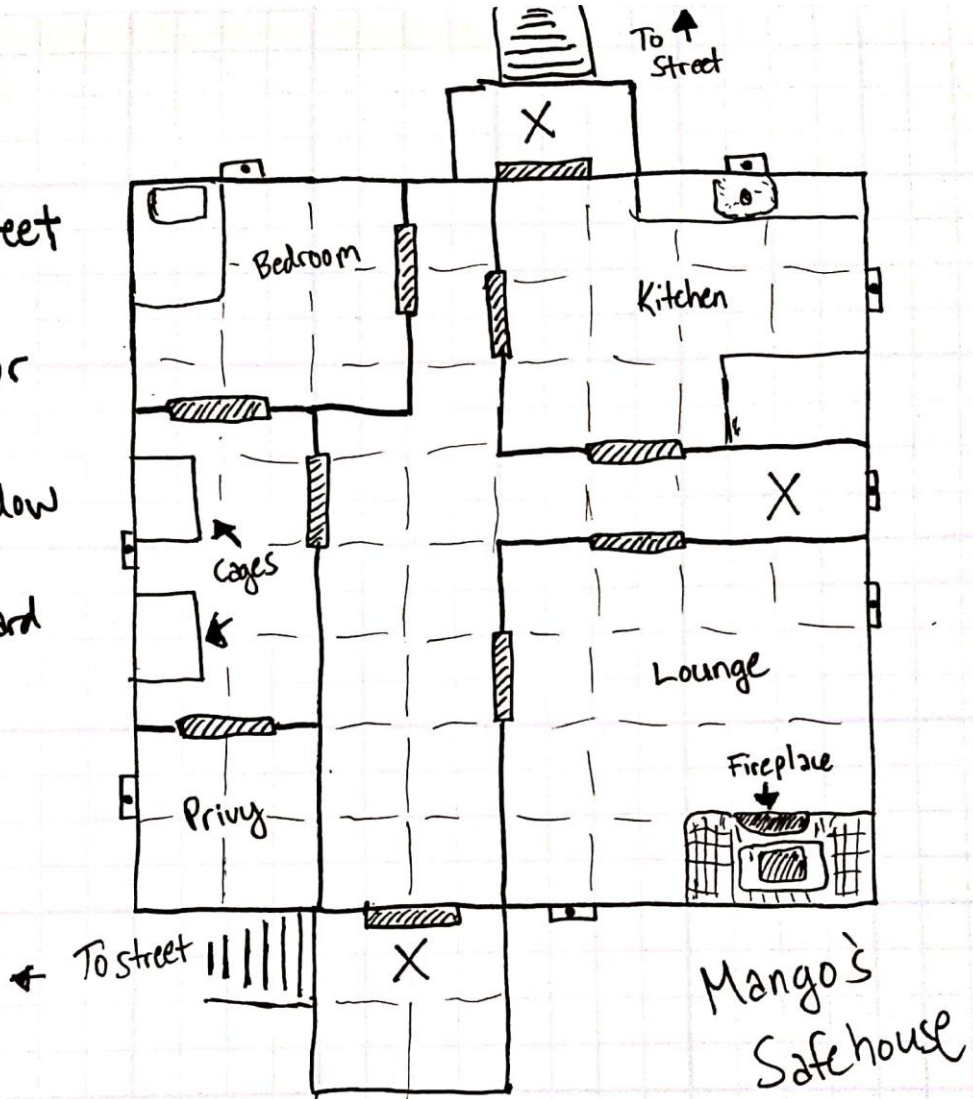 To
Street
X
eet
Bedroom
Kitchen
or
dow
X
cages
ard
Lounge
Fireplace
Privy
To street
X
Mango's
Safehouse